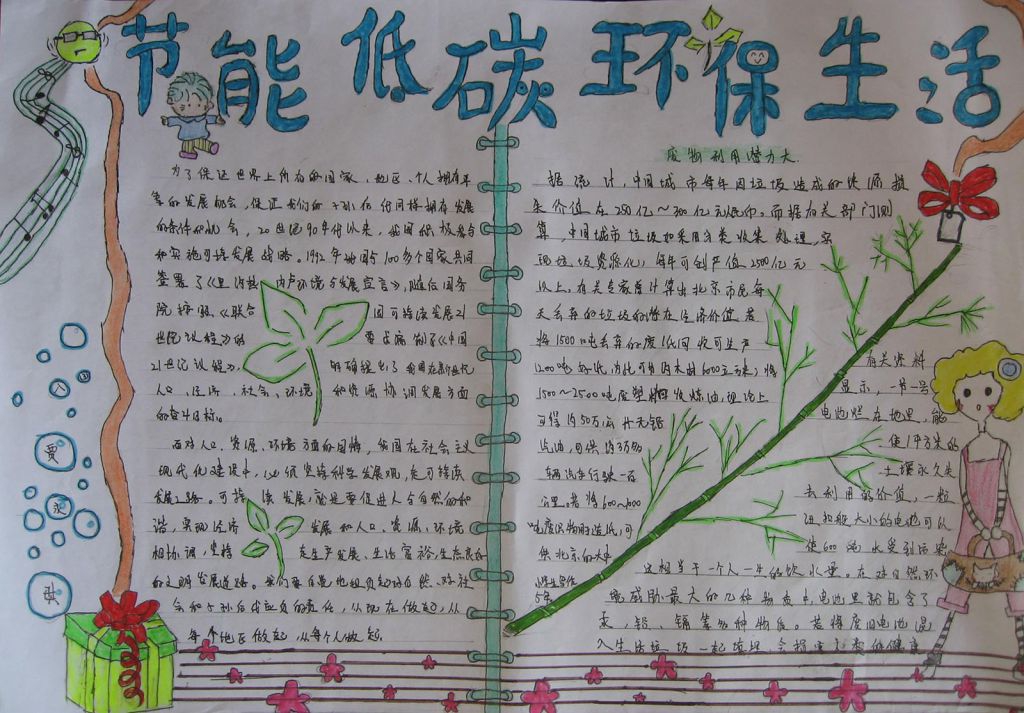 节能低碳环保生活
为了保证世界上所有的国家、地区、个人拥有平
等的发展机会,保证我们的子孙后代同样拥有发展
的条件和机会,20世纪90年代以来,我国积极参与
和实施可持续发展战略。1992年我国与100多个国家共同
签署了《里约热内卢环境与发展宣言》,随后国务
21世纪议程》,明确提出了我国在新世纪
人口、经济、社会、环境和资源协调发展方面
的奋斗目标。
面对人口、资源、环境方面的国情,我国在社会主义
现代化建设中,必须坚持科学发展观,走可持续
发展道路。可持续发展,就是要促进人与自然的和
谐,实现经济发展和人口、资源、环境
相协调,坚持在生产发展、生活富裕、生态良好
的文明发展道路。
会和子孙后代应负的责任,从现在做起,从
每个地区做起,从每个人做起。
废物利用潜力大
据统计,中国城市每年因垃圾造成的资源损
失价值在250亿~300亿元人民币。而据有关部门测
算,中国城市垃圾如采用分类收集处理,实
现垃圾资源化,每年可创产值2500亿元
以上。有关专家曾计算出北京市民每
天丢弃的垃圾的潜在经济价值:若
将1500吨丢弃的废纸回收可生产
1200吨好纸,
1500~2500吨废塑料收炼油,理论上
可得约50万公升无铅
汽油,可供约3万多
辆汽车行驶一百
公里。若将600~800
吨废织物制造纸,可
供北京的大中
小学生写作
有关资料
显示,一节一号
电池烂在地里,能
使1平方米的
土壤永久失
去利用的价值,一粒
纽扣般大小的电池可以
使600吨水受到污染
这相当于一个人一生的饮水量。在对自然环
境威胁最大的几种物质中,电池里就包含了
汞、铅、镉等多种物质。若将废旧电池混
入生活垃圾一起填埋
贾
琪